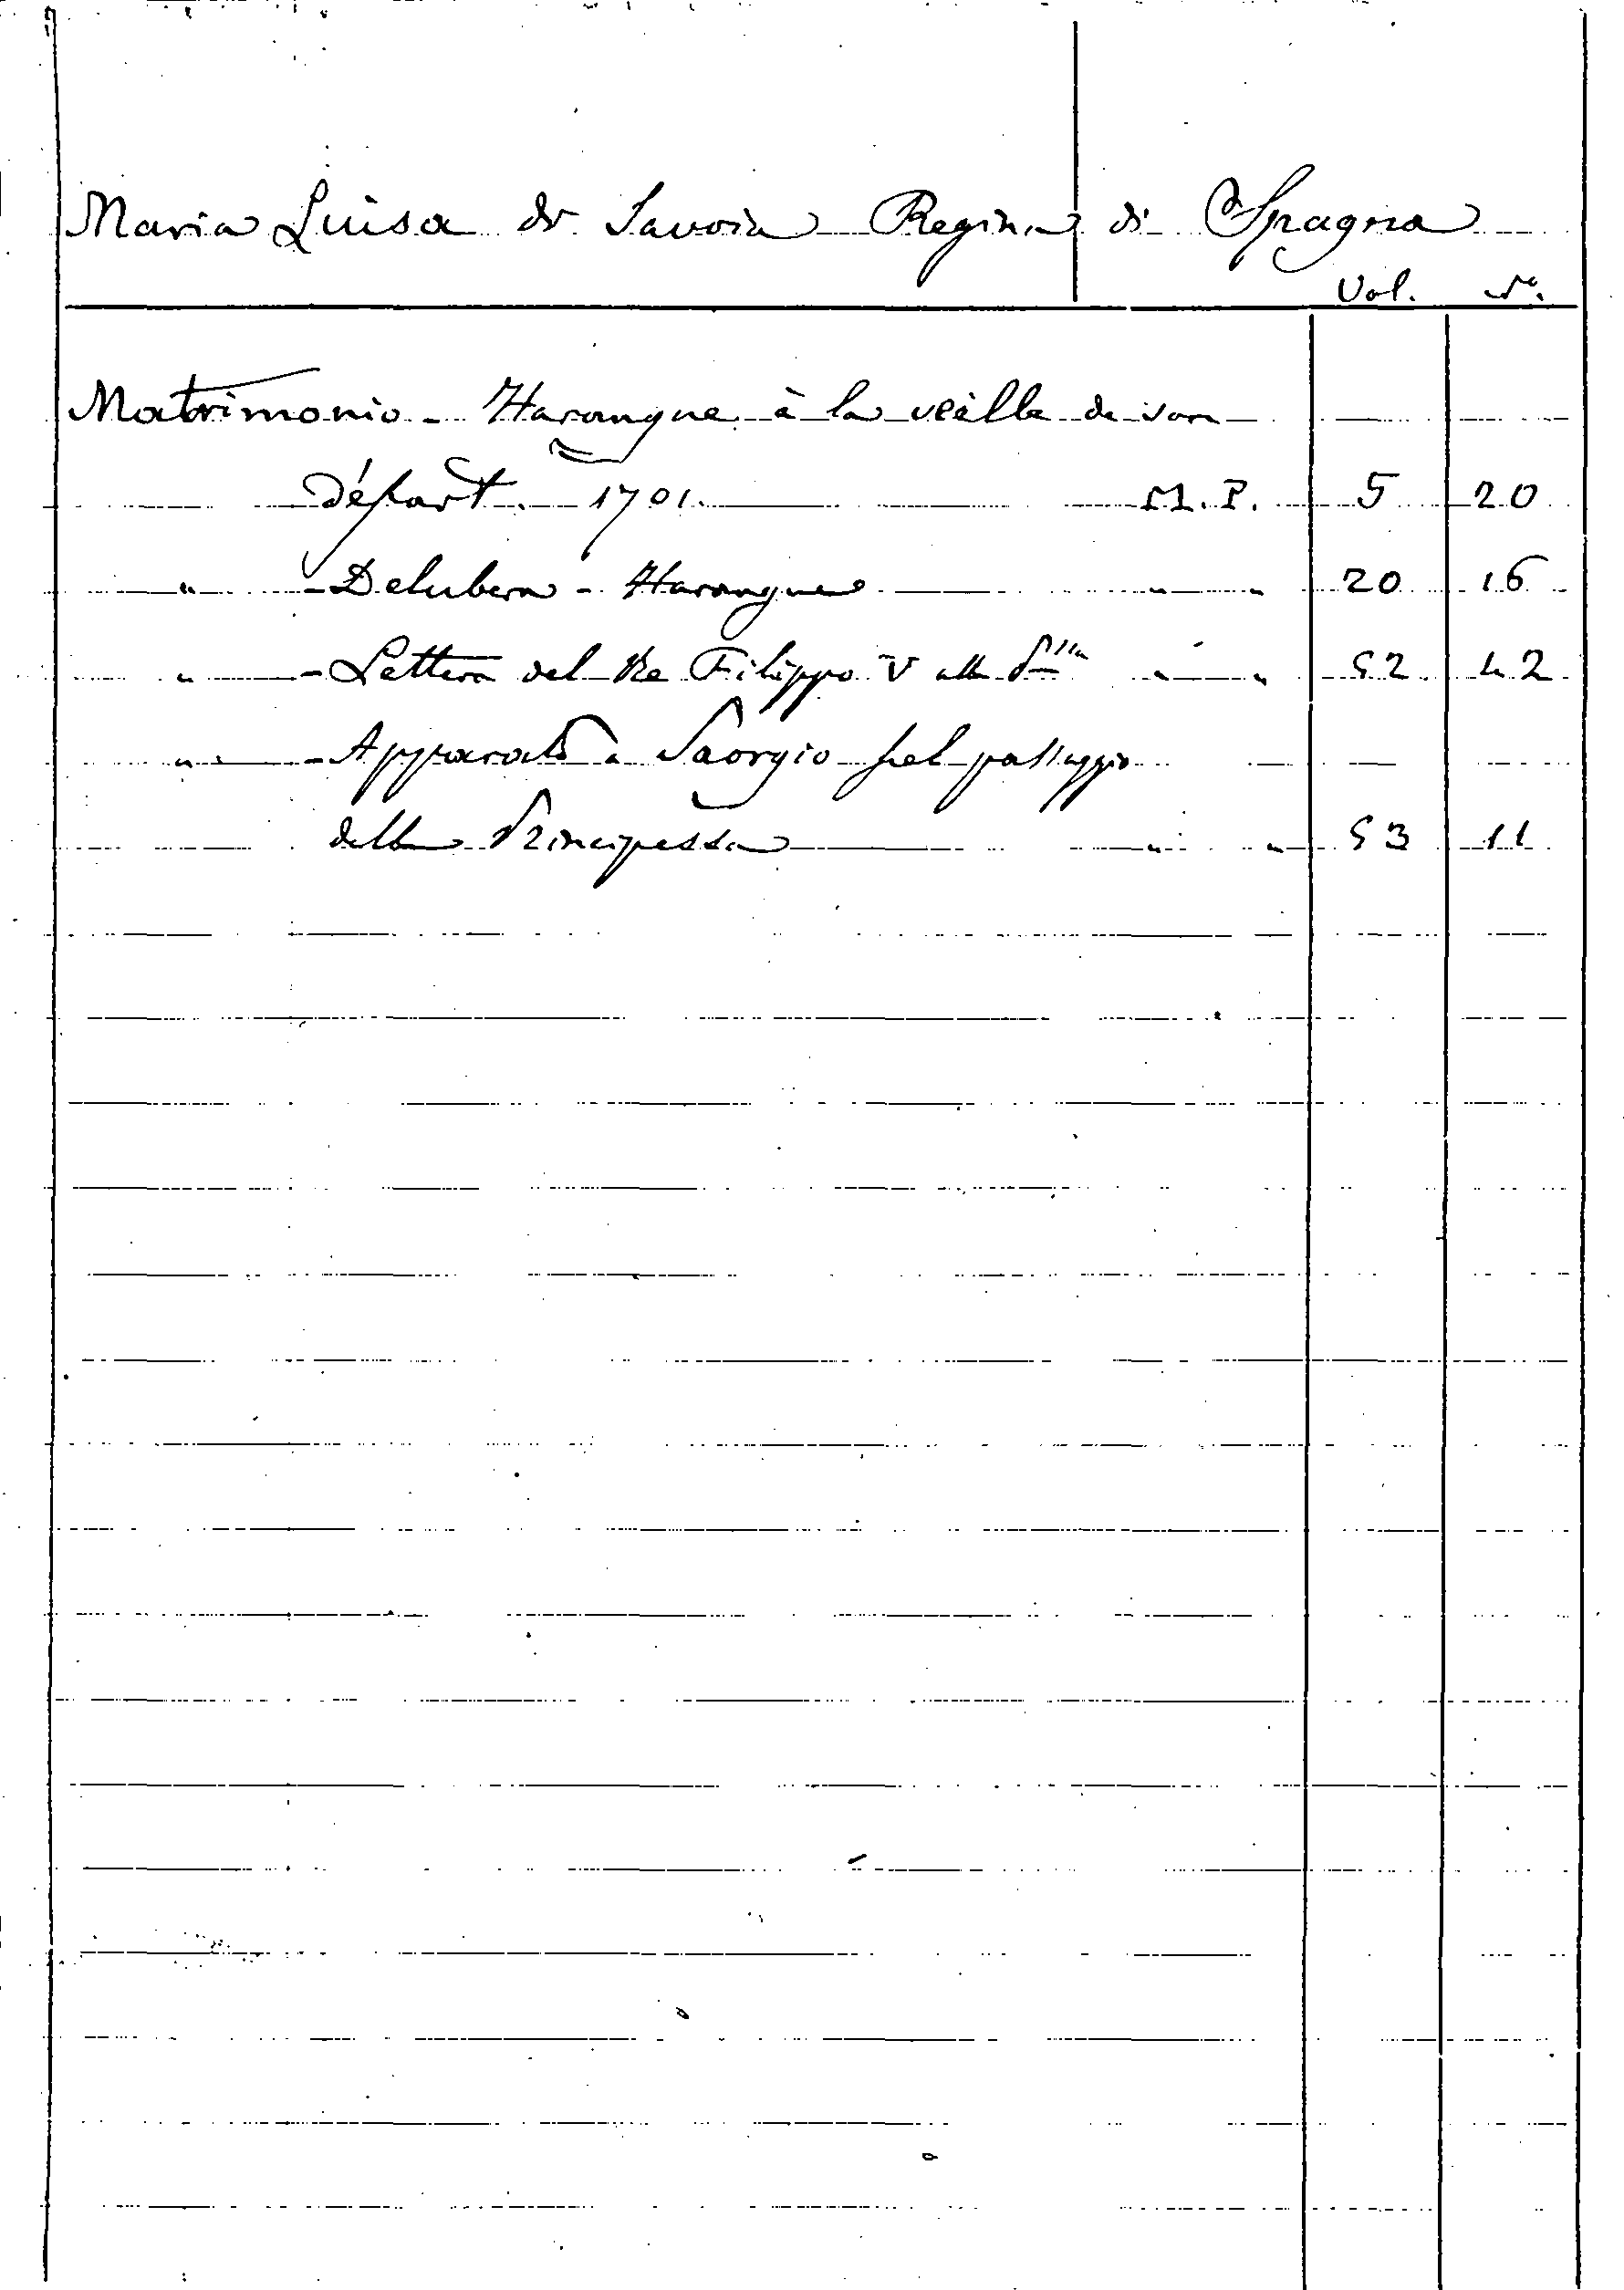 Maria Luisa di Savoia Regina di Spagna
Vol. N°.
Matrimonio - Harangue à la veille de son
départ. 1701. M. P. 5 20
" - Delubera - Harangue " " 20 16
" - Lettera del Re Filippo V alla " " 52 42
" - Apparato a Saorgio pel passaggio
della Principessa " " 53 11